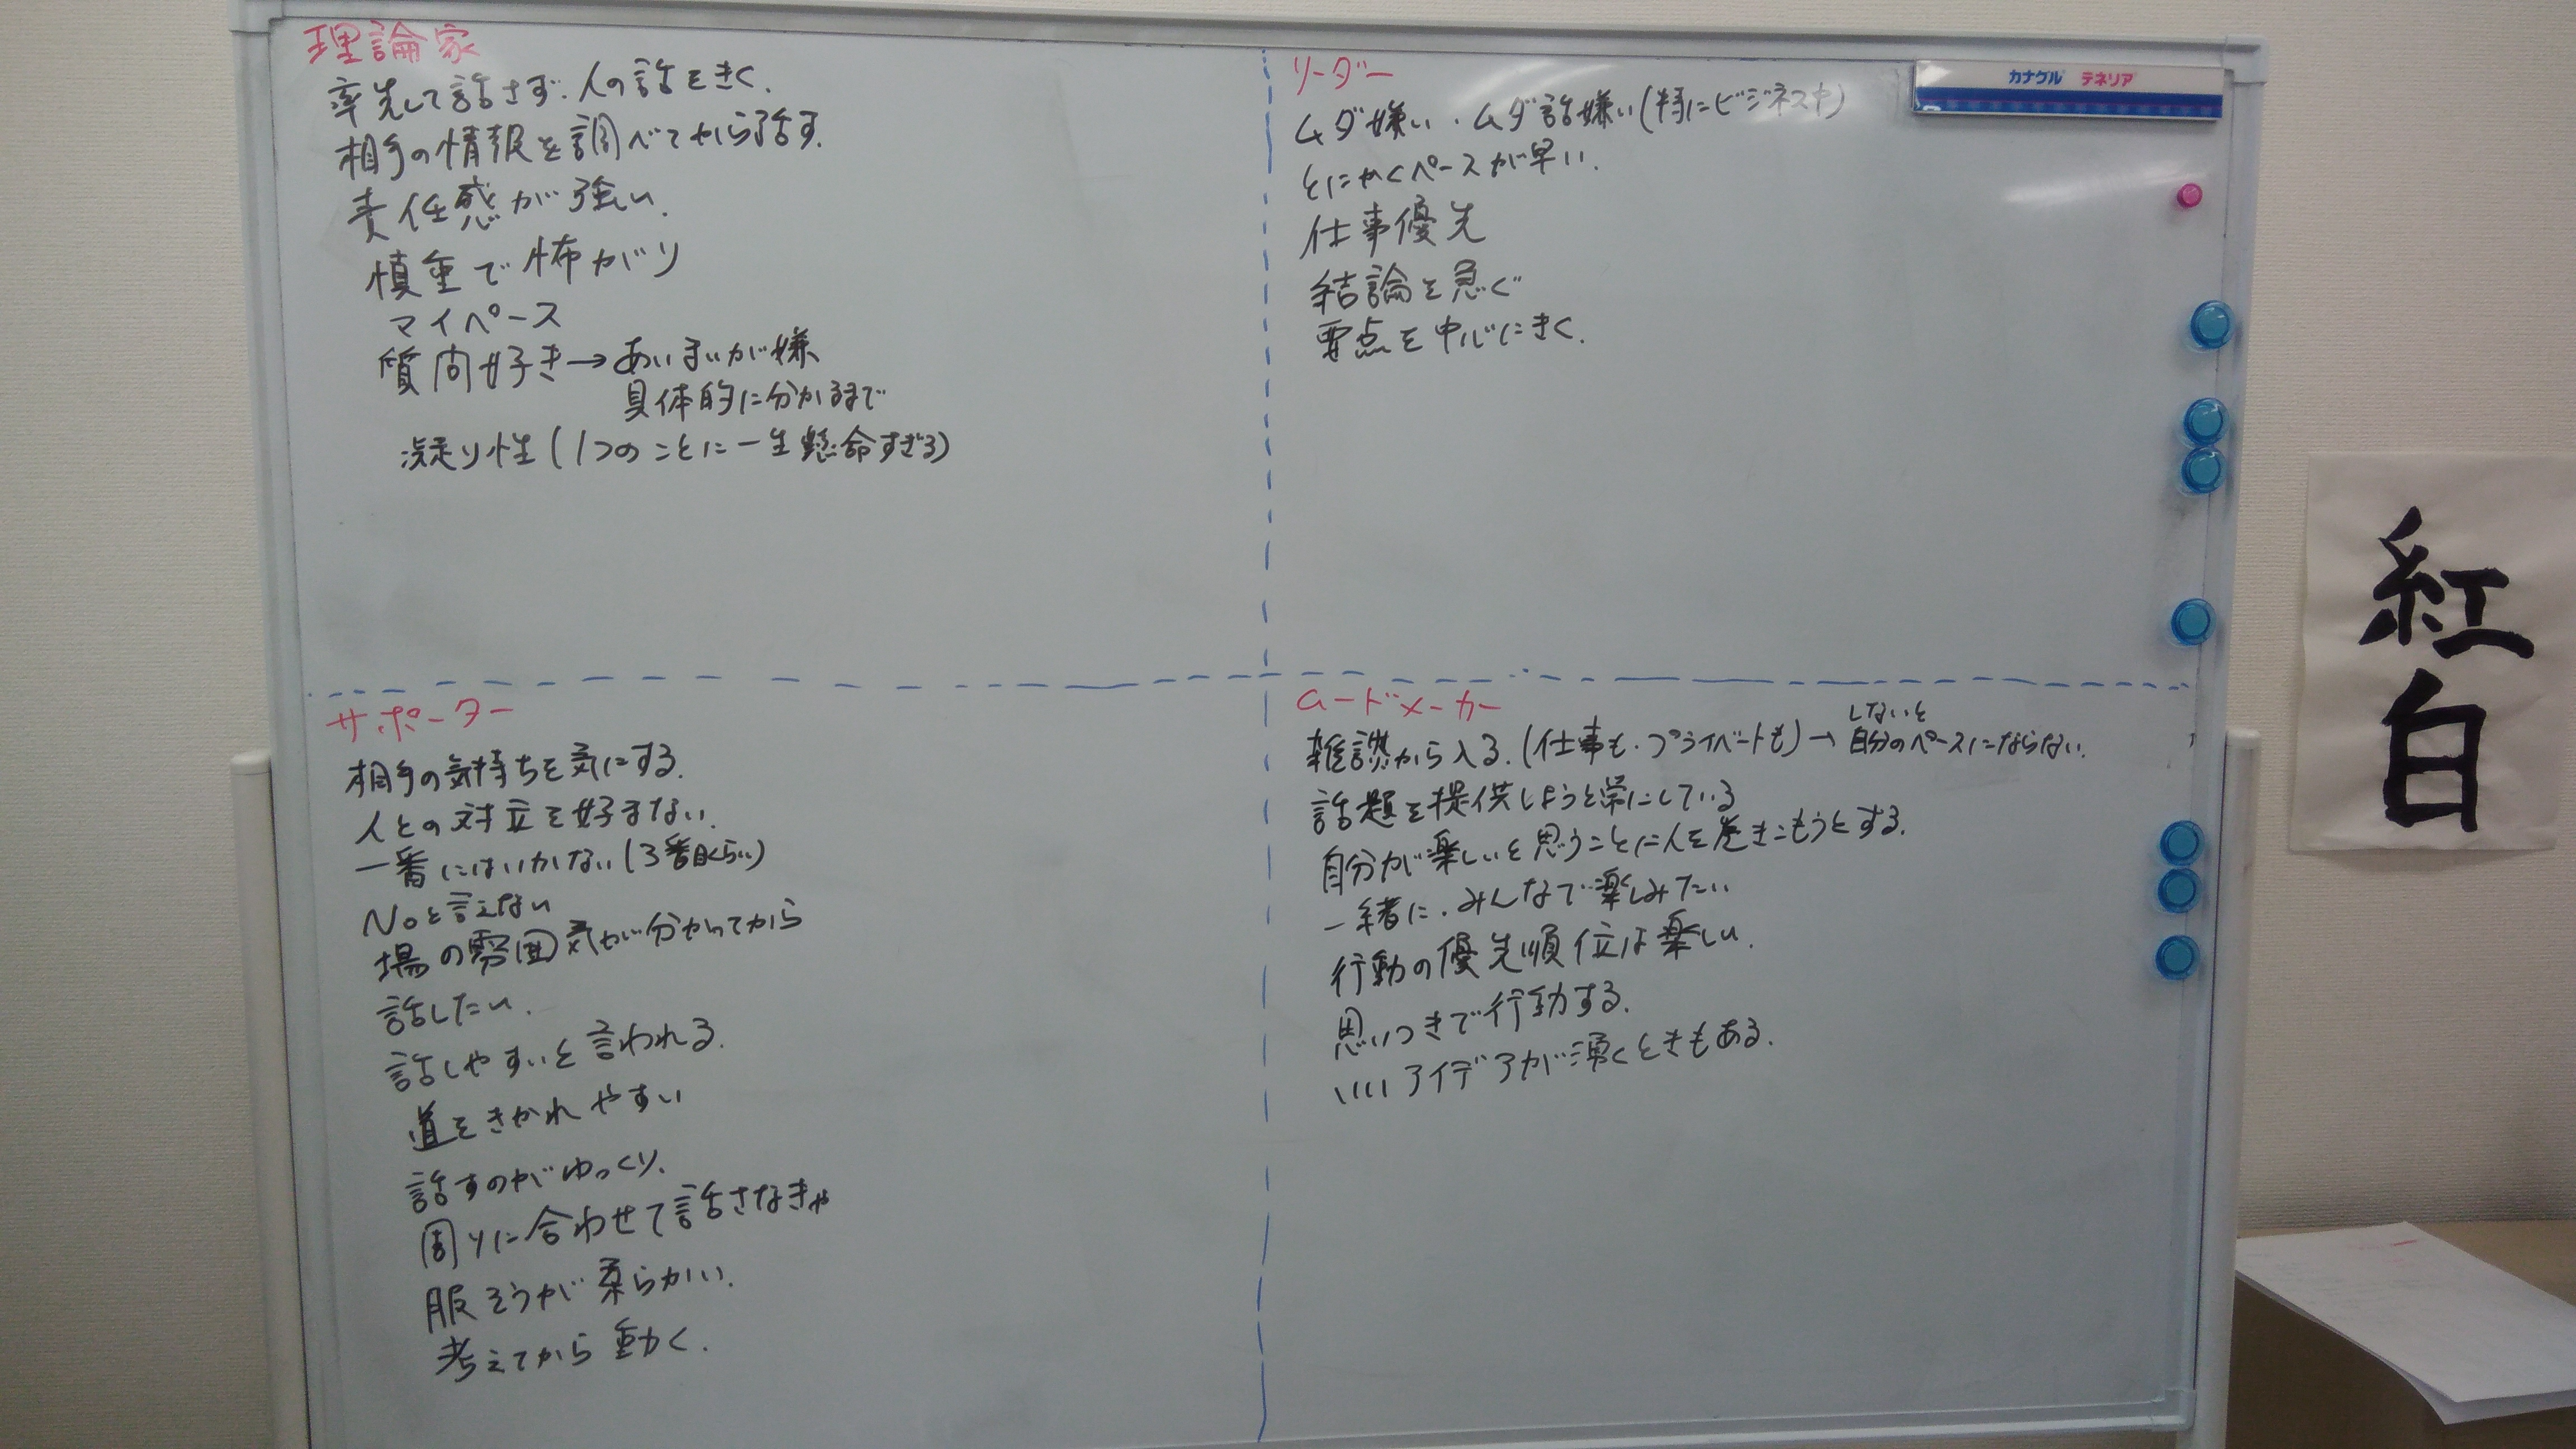 理論家
率先して話さず、人の話をきく.
相手の情報を調べてから話す.
責任感が強い.
慎重で怖がり
マイペース
質問好き→あいまいが嫌
具体的に分かるまで
凝り性(1つのことに一生懸命すぎる)
リーダー
ムダ嫌い・ムダ話嫌い(特にビジネスヤ)
とにかくペースが早い.
仕事優先
結論を急ぐ
要点を中心にきく.
カナグル テネリア
サポーター
相手の気持ちを気にする.
人との対立を好まない.
一番にはいかない(3番目くらい)
Noと言えない
場の雰囲気が分かってから
話したい.
話しやすいと言われる.
道をきかれやすい
話すのがゆっくり.
周りに合わせて話さなきゃ
服そうが柔らかい.
考えてから動く.
ムードメーカー
雑談から入る.(仕事も・プライベートも)→しないと
自分のペースにならない.
話題を提供しようと常にしている
自分が楽しいと思うことに人を巻きこもうとする.
一緒に・みんなで楽しみたい
行動の優先順位は楽しい.
思いつきで行動する.
いいアイデアが湧くときもある.
紅白